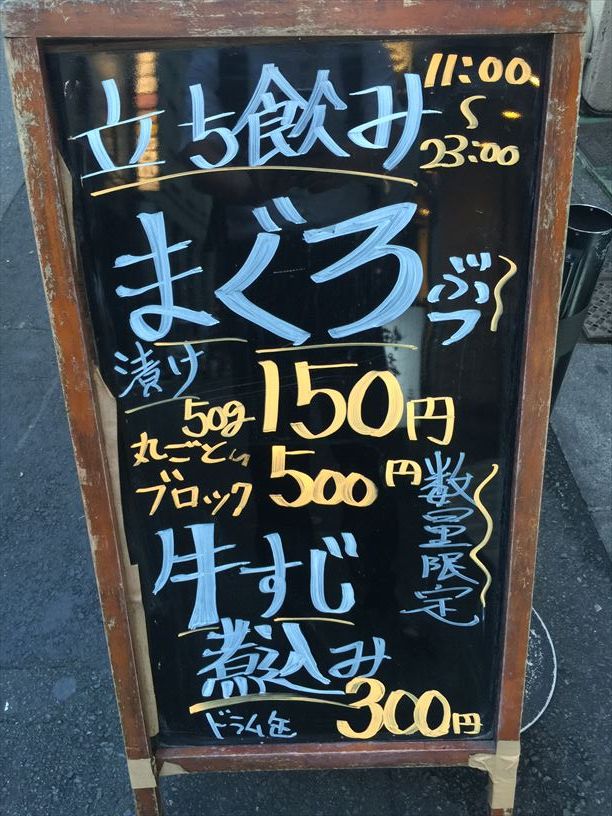 立ち飲み
11:00
～
23:00
まぐろ
ぶつ
漬け
50g 150円
丸ごと
ブロック 500円
数量限定
牛すじ
煮込み
300円
ドラム缶